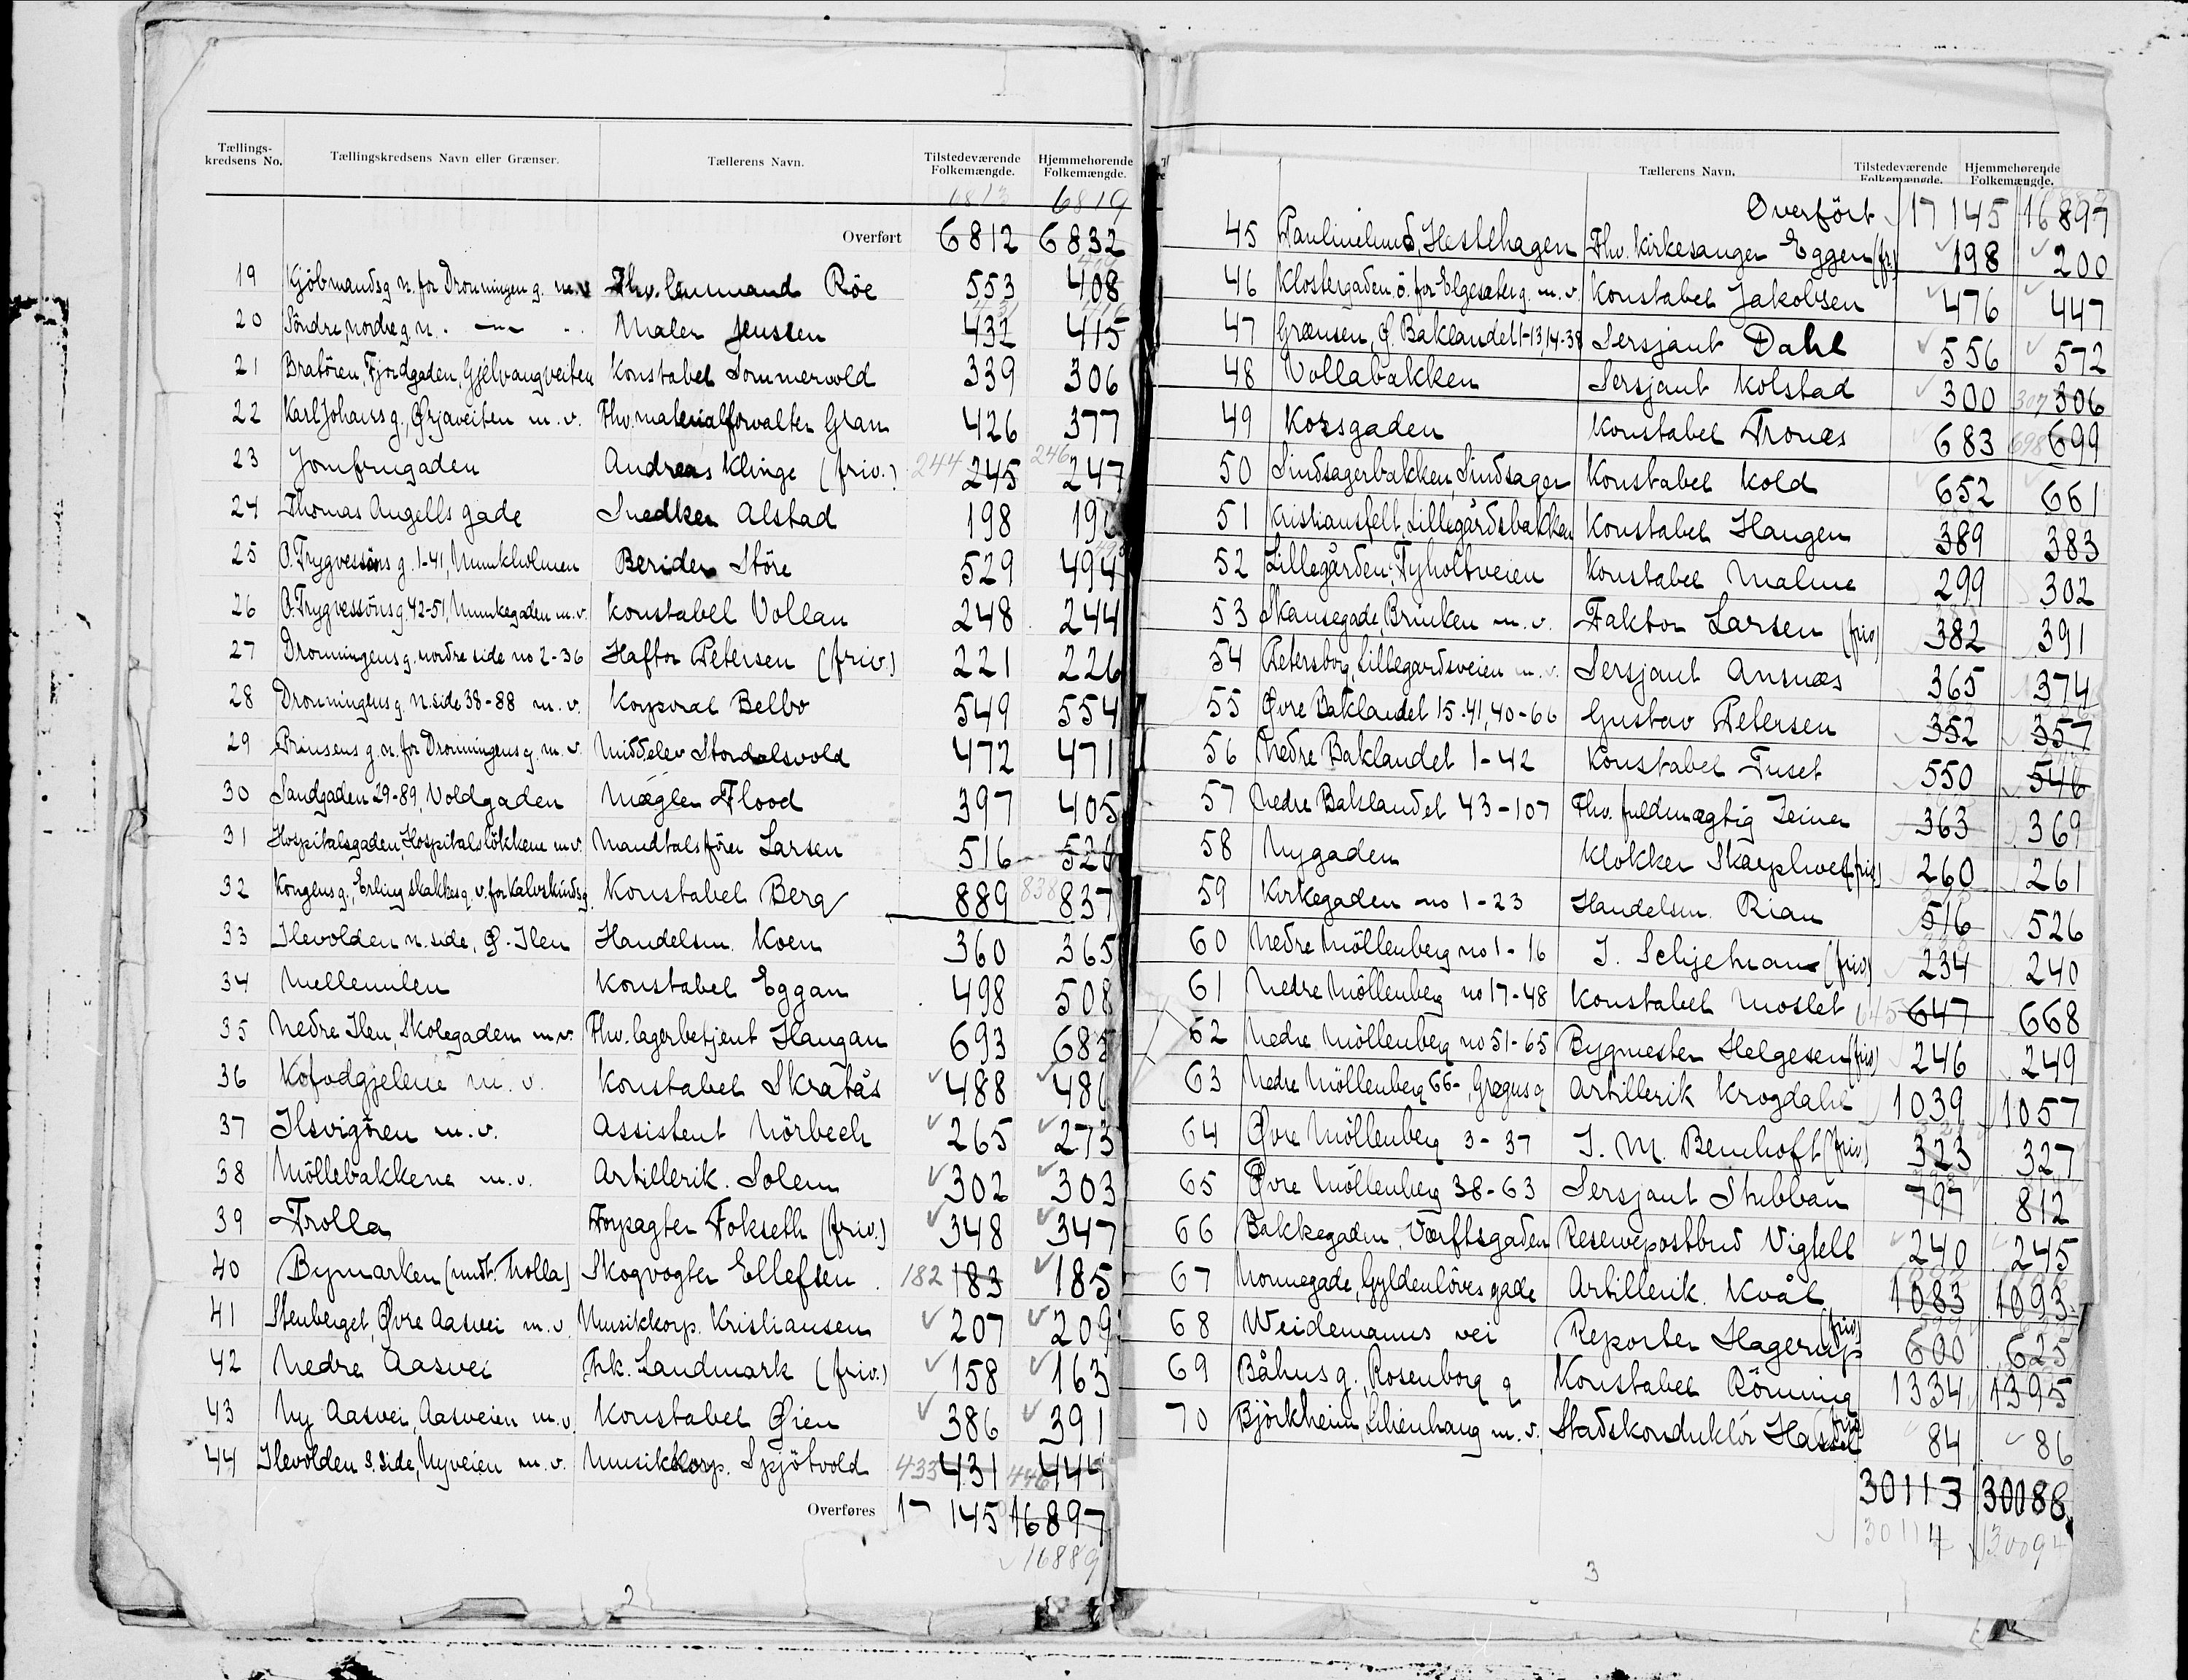 Tællings-
kredsens No. Tællingskredsens Navn eller Grænser. Tællerens Navn. Tilstedeværende Folkemængde. Hjemmehørende Folkemængde.
6813 6819
Overført 6812 6832
19 Kjöbmandsg n. for Dronningen g. m.v Röe 553 408
20 Söndre, nordre g n. Maler Jenssen 432 415
21 Bratören, Fjordgaden, Gjelvangveiten Konstabel Sommervold 339 306
22 Karl Johans g., Ørjaveiten m. v. Fhv. materialforvalter Gran 426 377
23 Jomfrugaden Andreas Klinge (friv.) 244 245 246 247
24 Thomas Angells gade Snedker Alstad 198
25 O. Trygvessöns g. 1-41, Munkholmen Berider Störe 529 494
26 O. Trygvessöns g 42-51, Munkegaden m.v. Konstabel Vollan 248 244
27 Dronningens g. nordre side no 2-36 Haftor Petersen (friv.) 221 226
28 Dronningens g. n. side 38-88 m. v. Korporal Belbo 549 554
29 Prinsens g. n. for Dronningens g. m. v. Middelev Stordalsvold 472 471
30 Sandgaden 29-89, Voldgaden Mægler Flood 397 405
31 Hospitalsgaden, Hospitalslökkene m.v. Mandtalsförer Larsen 516 526
32 Kongens g., Erling Skakkes g. v. for Kalvskindsg. Konstabel Berg 889 838 837
33 Ilevolden n. side, Ø. Ilen Handelsm. Koen 360 365
34 Mellemilen Konstabel Eggan 498 508
35 Nedre Ilen, Skolegaden m.v. Fhv. lagerbetjent Haugan 693 685
36 Kofodgjelene m. v. Konstabel Skratås 488
37 Ilsvigören m. v. Assistent Nörbech 265 273
38 Möllebakkene m.v. Artillerik. Solem 302 303
39 Trolla Forpagter Fokseth (friv.) 348 347
40 Bymarken (undt. Trolla) Skogvogter Ellefsen 182 183 185
41 Stenberget, Øvre Aasvei m. v. Musikkorp. Kristiansen 207 209
42 Nedre Aasvei Frk. Landmark (friv.) 158 163
43 Ny Aasvei, Aasveien m.v. Konstabel Øien 386 391
44 Ilevolden s. side, Nyveien m. v. Musikkorp. Spjötvold 433 431 446 444
Overføres 17 145 16897
16889
2
Tællerens Navn. Tilstedeværende Folkemængde. Hjemmehørende Folkemængde.
Overført 17 145 16897
45 Paulinelund, Hestehagen Fhv. Kirkesanger Eggen (fr.) 198 200
46 Klostergaden, ö. for Elgesæter g. m. v. Konstabel Jakobsen 476 447
47 Grænsen, Ø. Baklandet 1-13, 14-38 Sersjant Dahl 556 572
48 Vollabakken Sersjant Kolstad 300 307 306
49 Korsgaden Konstabel Tronæs 683 698 699
50 Sindsagerbakken, Sindsager Konstabel Kold 652 661
51 Kristiansfelt, Lillegårdsbakken Konstabel Haugen 389 383
52 Lillegården, Tyholtveien Konstabel Malme 299 302
53 Skansegade, Brinken m. v. Faktor Larsen (friv) 382 391
54 Petersborg, Lillegardsveien m. v. Sersjant Ansnæs 365 374
55 Øvre Baklandet 15-41, 40-66 Gustav Petersen 352 357
56 Nedre Baklandet 1-42 Konstabel Fuset 550 546
57 Nedre Baklandet 43-107 Fhv. fuldmægtig Zeiner 363 369
58 Nygaden Klokker Skarphol (friv) 260 261
59 Kirkegaden no 1-23 Handelsm. Rian 516 526
60 Nedre Möllenberg no 1-16 J. Schjelnan (friv) 234 240
61 Nedre Möllenberg no 17-48 Konstabel Moslet 645 647 668
62 Nedre Möllenberg no 51-65 Bygmester Helgesen (friv) 246 249
63 Nedre Möllenberg 66-, Græגus g Artillerik Krogdahl 1039 1057
64 Øvre Möllenberg 3-37 J. M. Bernhoft (friv) 323 327
65 Øvre Möllenberg 38-63 Sersjant Stubban 797 812
66 Bakkegaden, Værftsgaden Reservepostbud Vigtell 240 245
67 Nonnegade, Gyldenlöves gade Artillerik. Kvål 1083 1093
68 Weidemanns vei Reporter Hagerup (friv) 600 625
69 Båhus g., Rosenborg g Konstabel Rönning 1334 1395
70 Björkheim, Lilienhaug m. v. Stadskonduktör Hassel (friv) 84 86
30113 30088
30114 30094
3